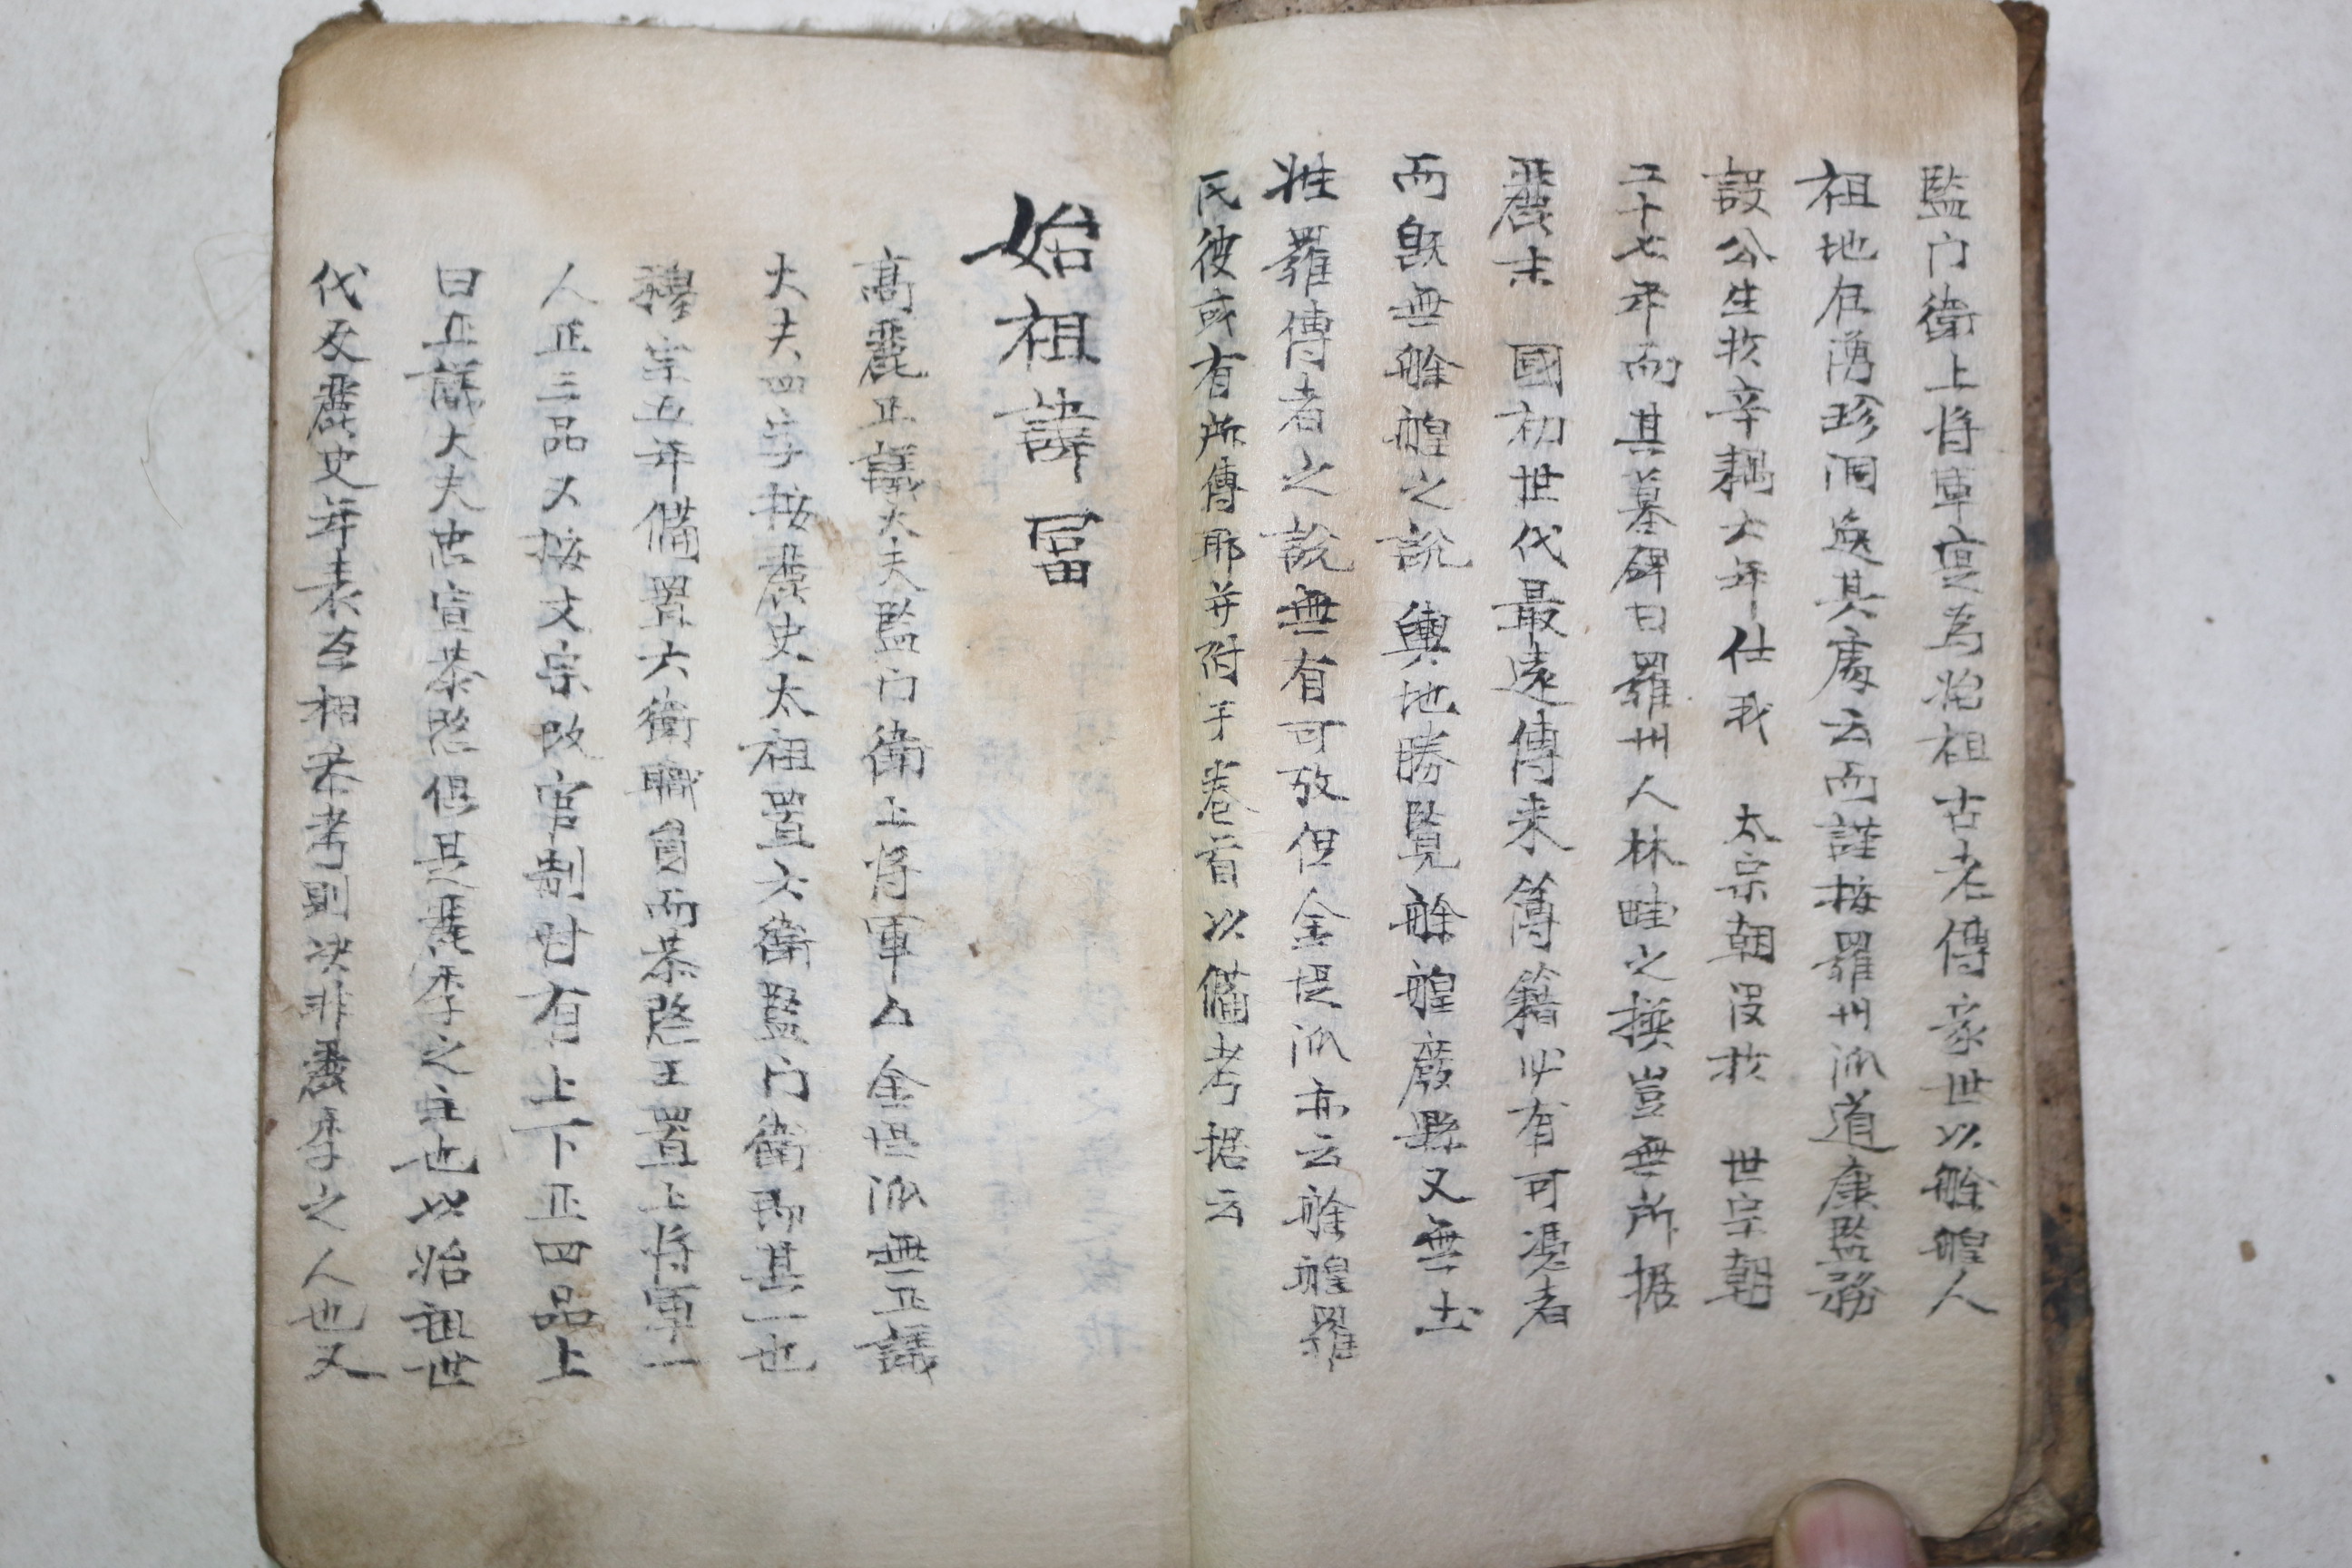 監門衛上將軍寔爲始祖古老傳家世以艅艎人
祖地在湧珍洞逸其處云而謹按羅州派道康監務
諱公生於辛耦六年仕我 太宗朝沒於 世宗朝
二十七年而其墓碑曰羅州人林畦之撰豈無所據
麗末 國初世代最遠傳来簿籍必有可憑者
而旣無艅艎之說輿地勝覽艅艎廢縣又無土
姓羅傳者之說無有可攷但金堤派亦云艅艎羅
氏彼或有所傳耶并附于卷首以備考据云
始祖諱冨
高麗正議大夫監門衛上將軍△金堤派無正議
大夫四字按麗史太祖置六衛監門衛即其一也
穆宗五年備置六衛職員而恭愍王置上將軍一
人正三品又按文宗改官制時有上下正四品上
曰正議大夫忠宣恭愍俱是麗季之主也以始祖世
代及麗史年表互相叅考則决非麗季之人也又